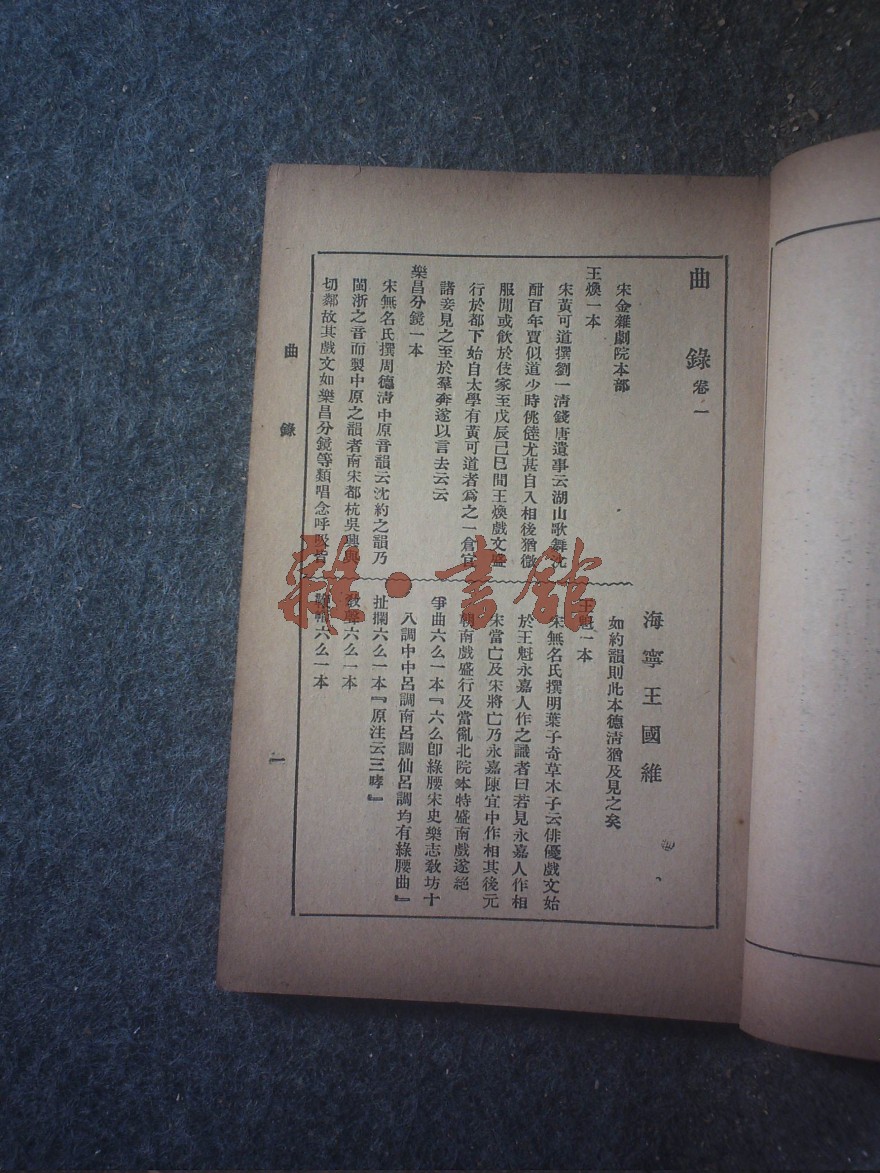 曲錄卷一
海寧王國維
宋金雜劇院本部
王煥一本
宋黃可道撰劉一清錢唐遺事云湖山歌舞沈
酣百年賈似道少時佻㒓尤甚自入相後猶微
服閒或飲於伎家至戊辰己巳間王煥戲文盛
行於都下始自太學有黃可道者爲之一倉官
諸妾見之至於羣奔遂以言去云云
樂昌分鏡一本
宋無名氏撰周德清中原音韻云沈約之韻乃
閩浙之音而製中原之韻者南宋都杭吳興與
切鄰故其戲文如樂昌分鏡等類唱念呼吸皆
如約韻則此本德清猶及見之矣
王魁一本
宋無名氏撰明葉子奇草木子云俳優戲文始
於王魁永嘉人作之識者曰若見永嘉人作相
宋當亡及宋將亡乃永嘉陳宜中作相其後元
朝南戲盛行及當亂北院本特盛南戲遂絕
爭曲六么一本『六么卽綠腰宋史樂志敎坊十
八調中中呂調南呂調仙呂調均有綠腰曲』
扯攔六么一本『原注云三哮』
敎聲六么一本
鞭帽六么一本
曲錄
一
雜·書館